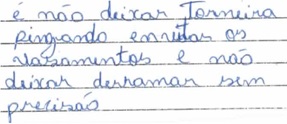 é não deixar Torneira
pingando envitar os
vazamentos e não
deixar derramar sem
precisão